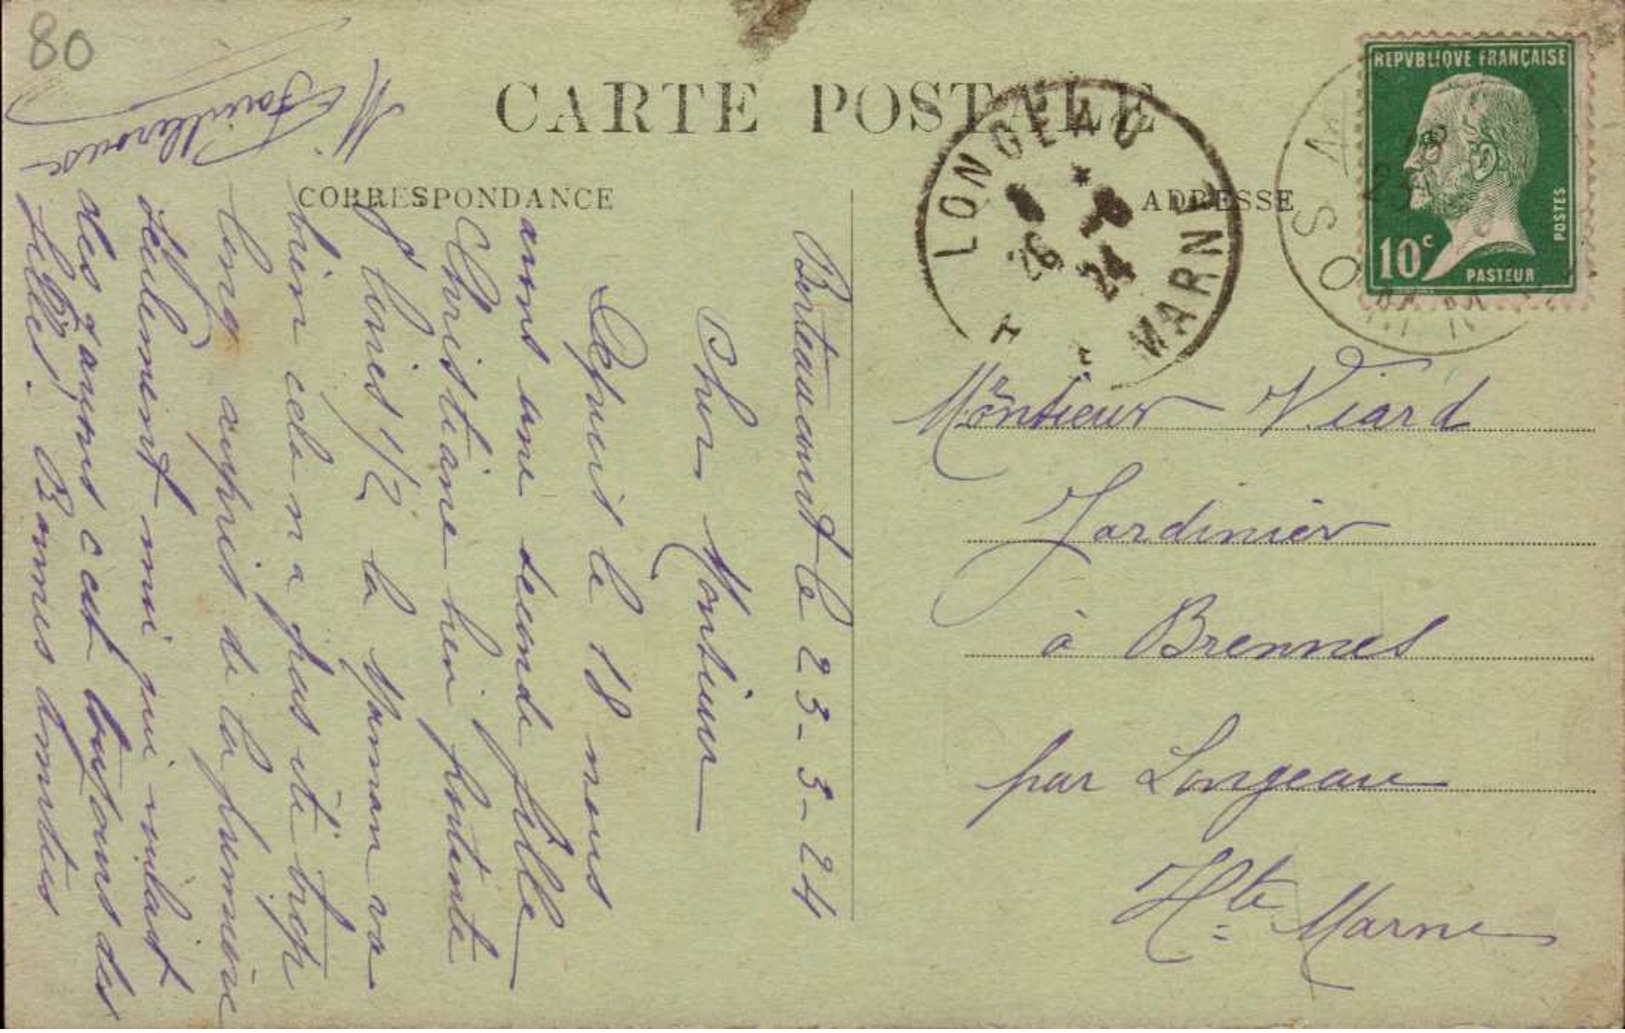 80
CARTE POSTALE
CORRESPONDANCE
ADRESSE
REPVBLIQVE FRANÇAISE
10c
POSTES
PASTEUR
LONGEAU
* 
26 3
24
Hte MARNE
le 23-3-24
Cher Monsieur
Depuis le 18 nous
avons une seconde fille
Christiane bien portante
8 livres 1/2 la Maman va
bien cela n'a pas été trop
long auprès de la première
Seulement moi qui voulait
des garçons c'est toujours des
filles. Bonnes amitiés
M
Monsieur Viard
Jardinier
à Brennes
par Longeau
Hte Marne